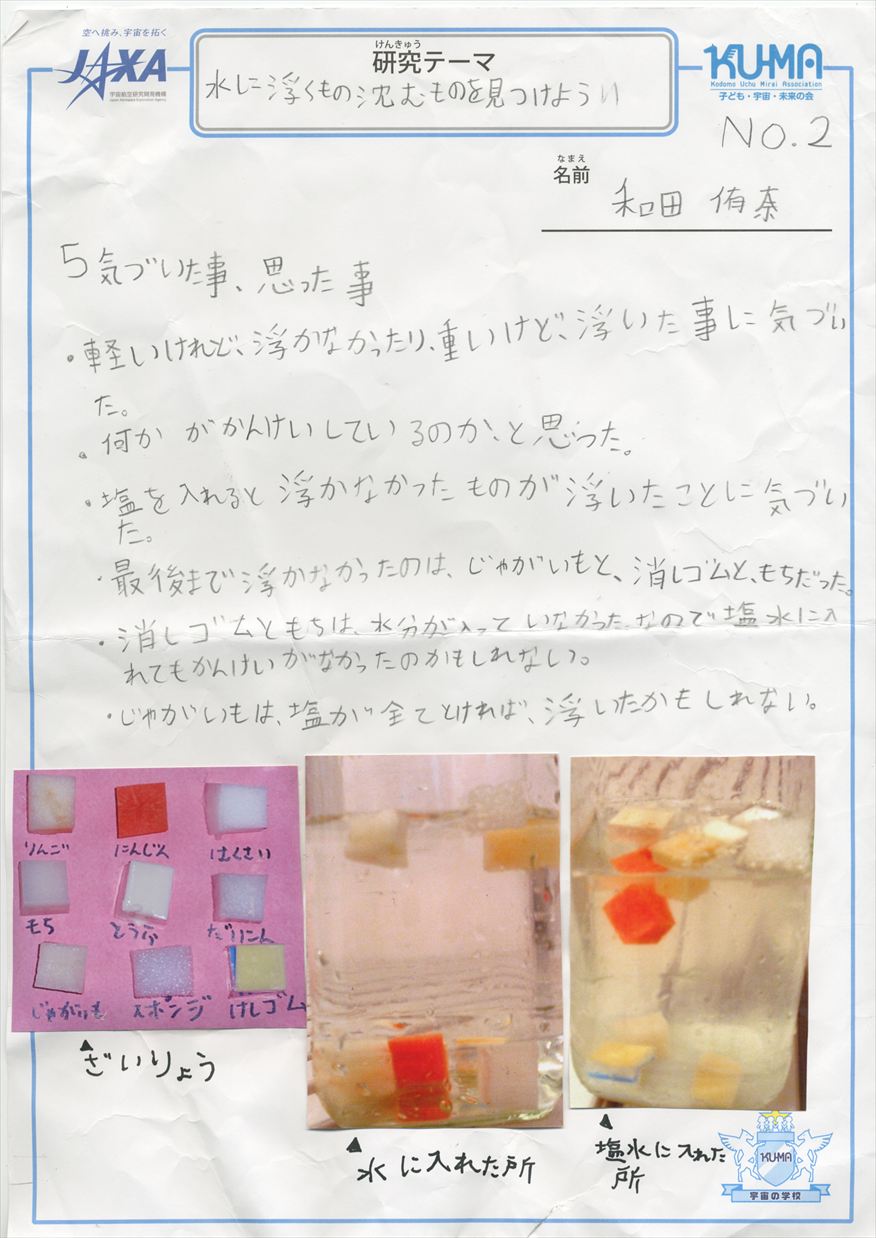 空へ挑み、宇宙を拓く
JAXA
宇宙航空研究開発機構
Japan Aerospace Exploration Agency
けんきゅう
研究テーマ
水に浮くもの沈むものを見つけよう!!
KU-MA
Kodomo Uchu Mirai Association
子ども・宇宙・未来の会
NO.2
なまえ
名前
和田 侑奈
5 気づいた事、思った事
・軽いけれど、浮かなかったり、重いけど、浮いた事に気づい
た。
・何かがかんけいしているのか、と思った。
・塩を入れると浮かなかったものが浮いたことに気づい
た。
・最後まで浮かなかったのは、じゃがいもと、消しゴムと、もちだった。
・消しゴムともちは、水分が入っていなかった、なので塩水に入
れてもかんけいがなかったのかもしれない。
・じゃがいもは、塩が全てとければ、浮いたかもしれない。
りんご にんじん はくさい
もち とうふ だいこん
じゃがいも スポンジ けしゴム
▲ざいりょう
▲水に入れた所
▲塩水に入れた
所
KU-MA
宇宙の学校